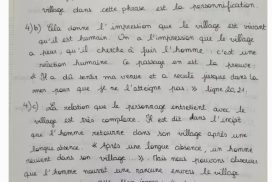 village dans cette phrase est la personnification.
4)b) Cela donne l'impression que le village est vivant
qu'il est humain. On a l'impression que le village
a peur, qu'il cherche à fuir l'homme : c'est une
réaction humaine. Ce passage en est la preuve :
« Il a dû sentir ma venue et a reculé jusque dans
la mer pour que je ne l'atteigne pas. » ligne 20,21.
4)c) La relation que le personnage entretient avec le
village est très complexe. Il est dit dans l'incipit
que l'homme retourne dans son village après une
longue absence : « Après une longue absence, un homme
revient dans son village ... ». Mais nous pouvons observer
que l'homme nourrit une rancune envers le village